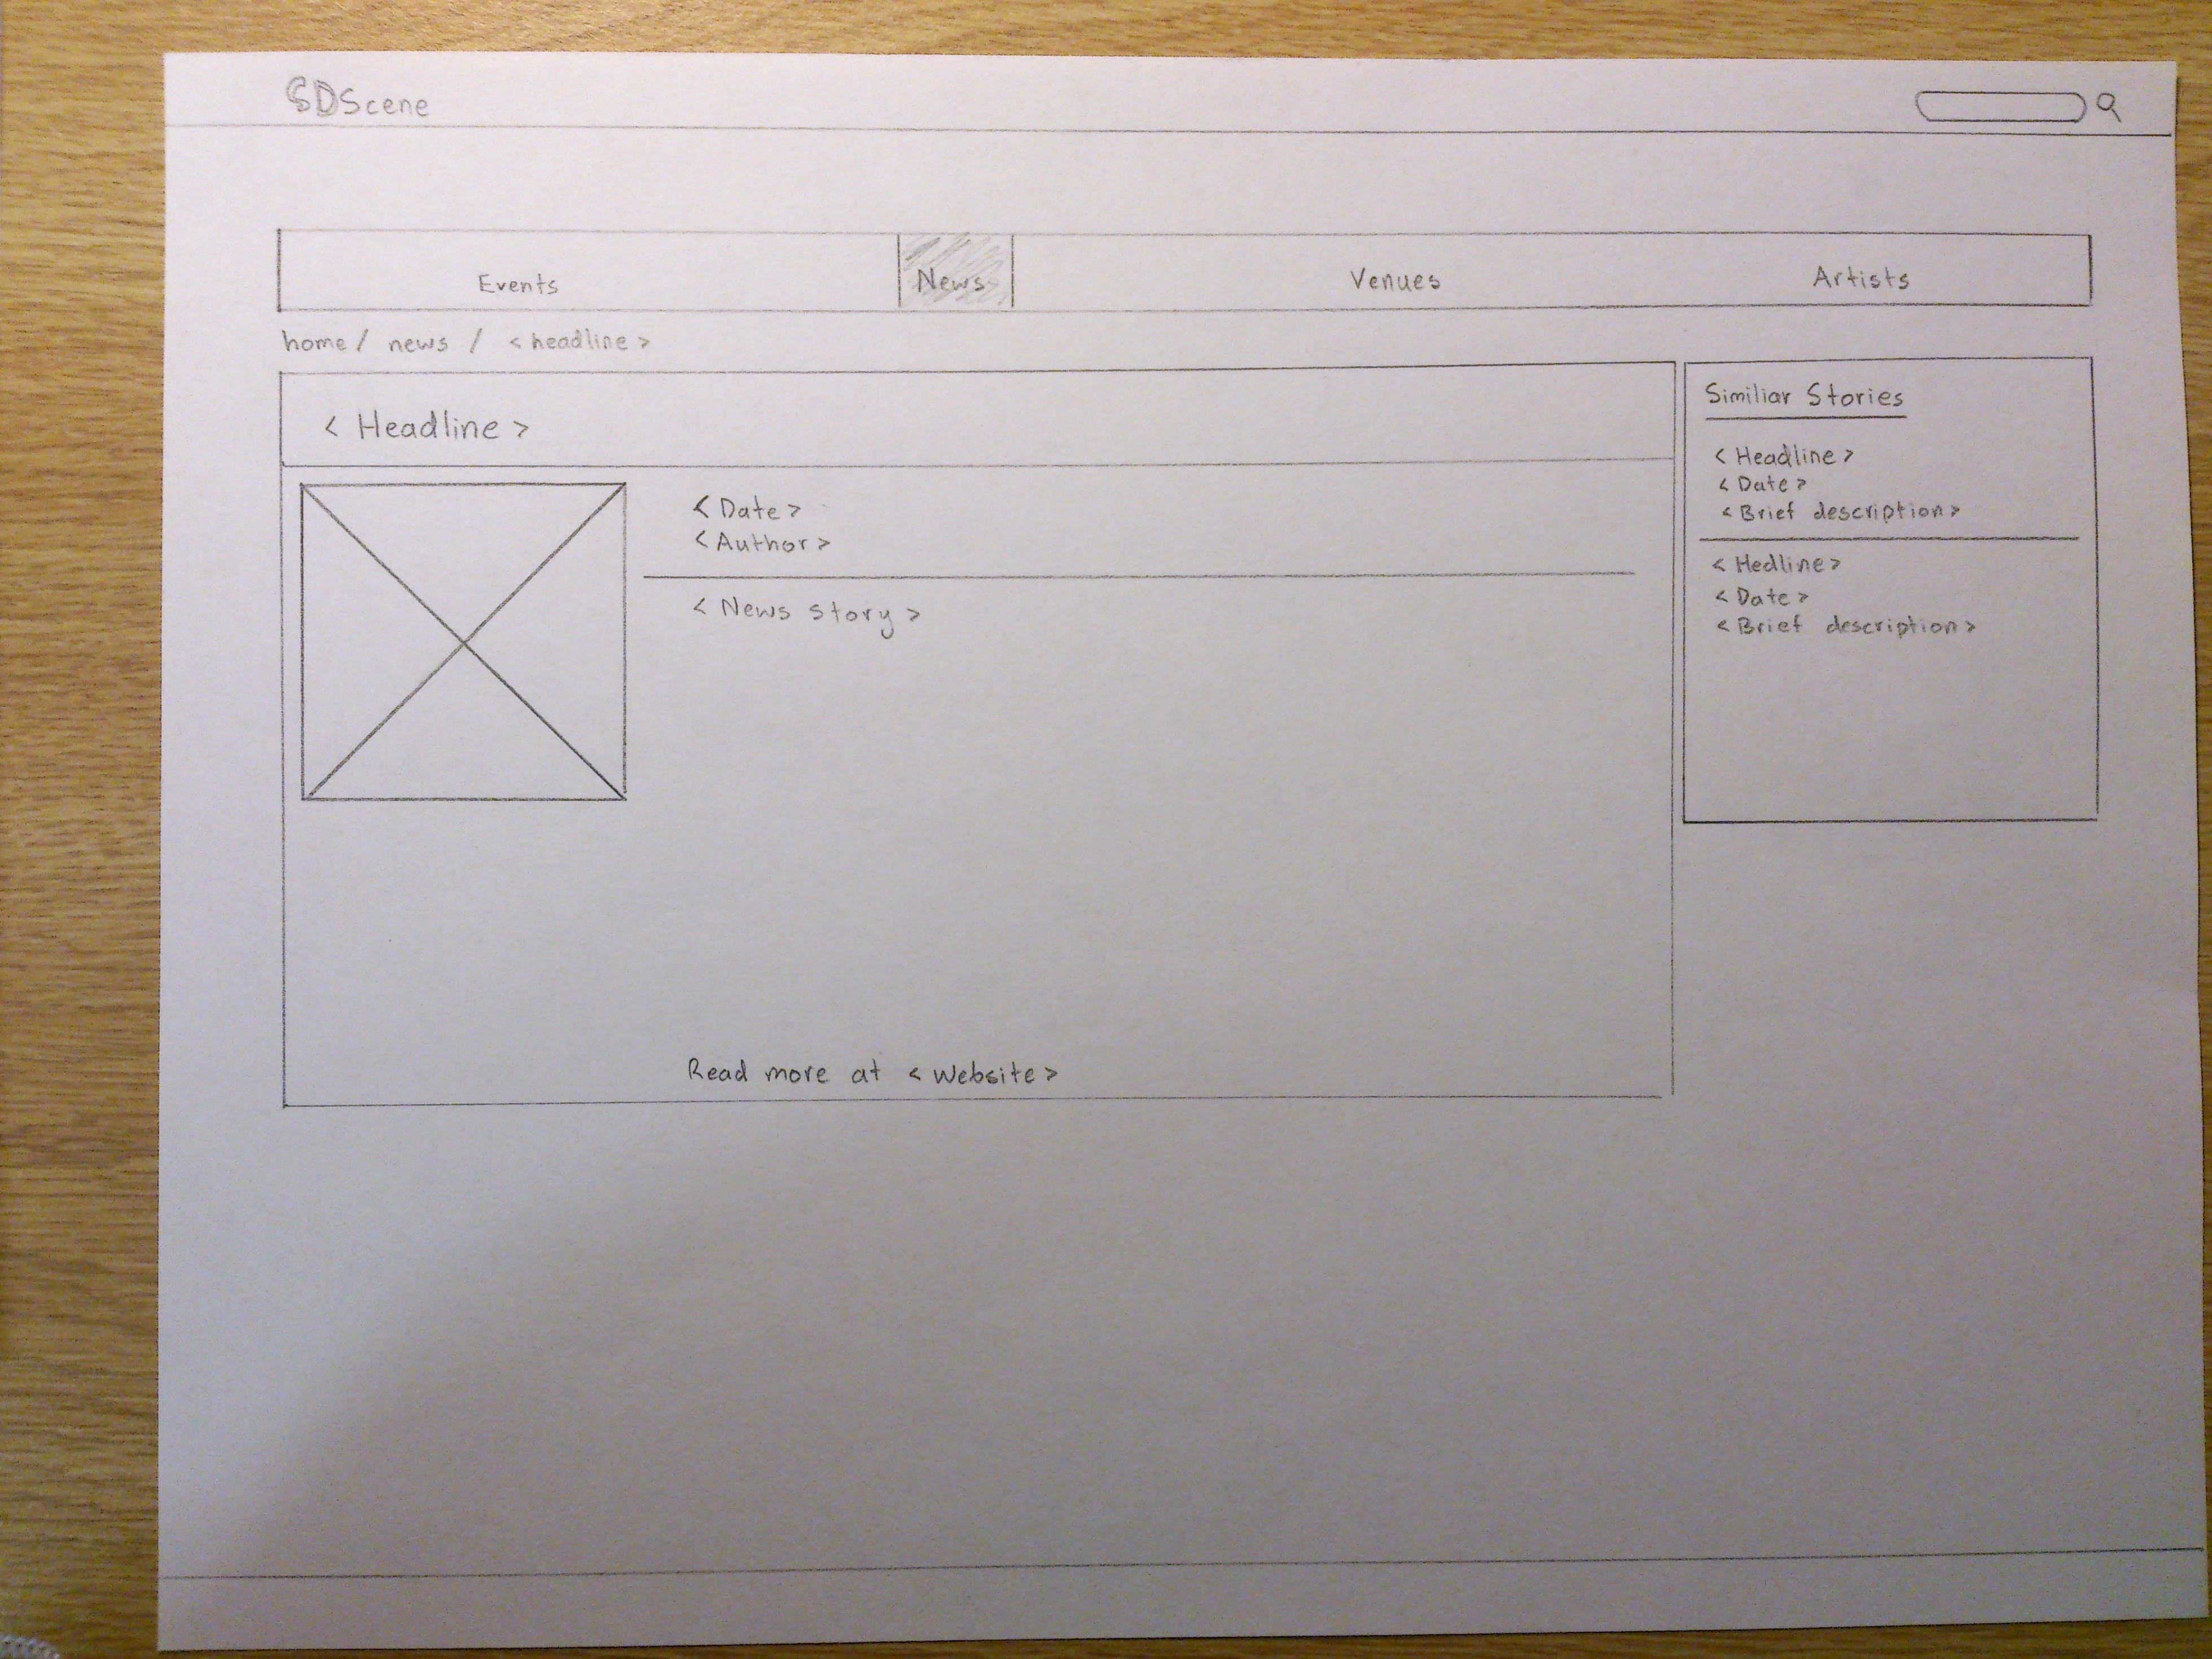 SDScene
Events News Venues Artists
home / news / <headline>
<Headline>
<Date>
<Author>
<News story>
Read more at <Website>
Similiar Stories
<Headline>
<Date>
<Brief description>
<Hedline>
<Date>
<Brief description>